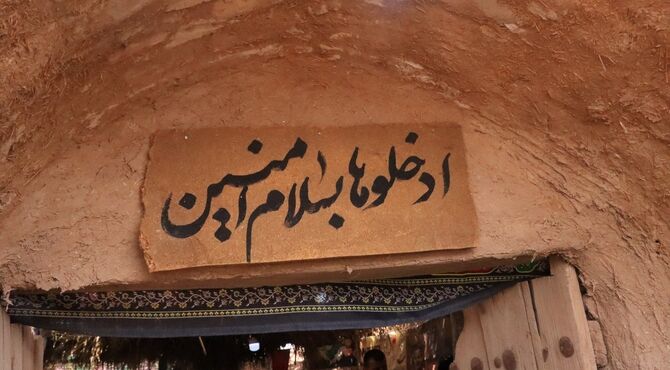 ادخلوها بسلام امنین